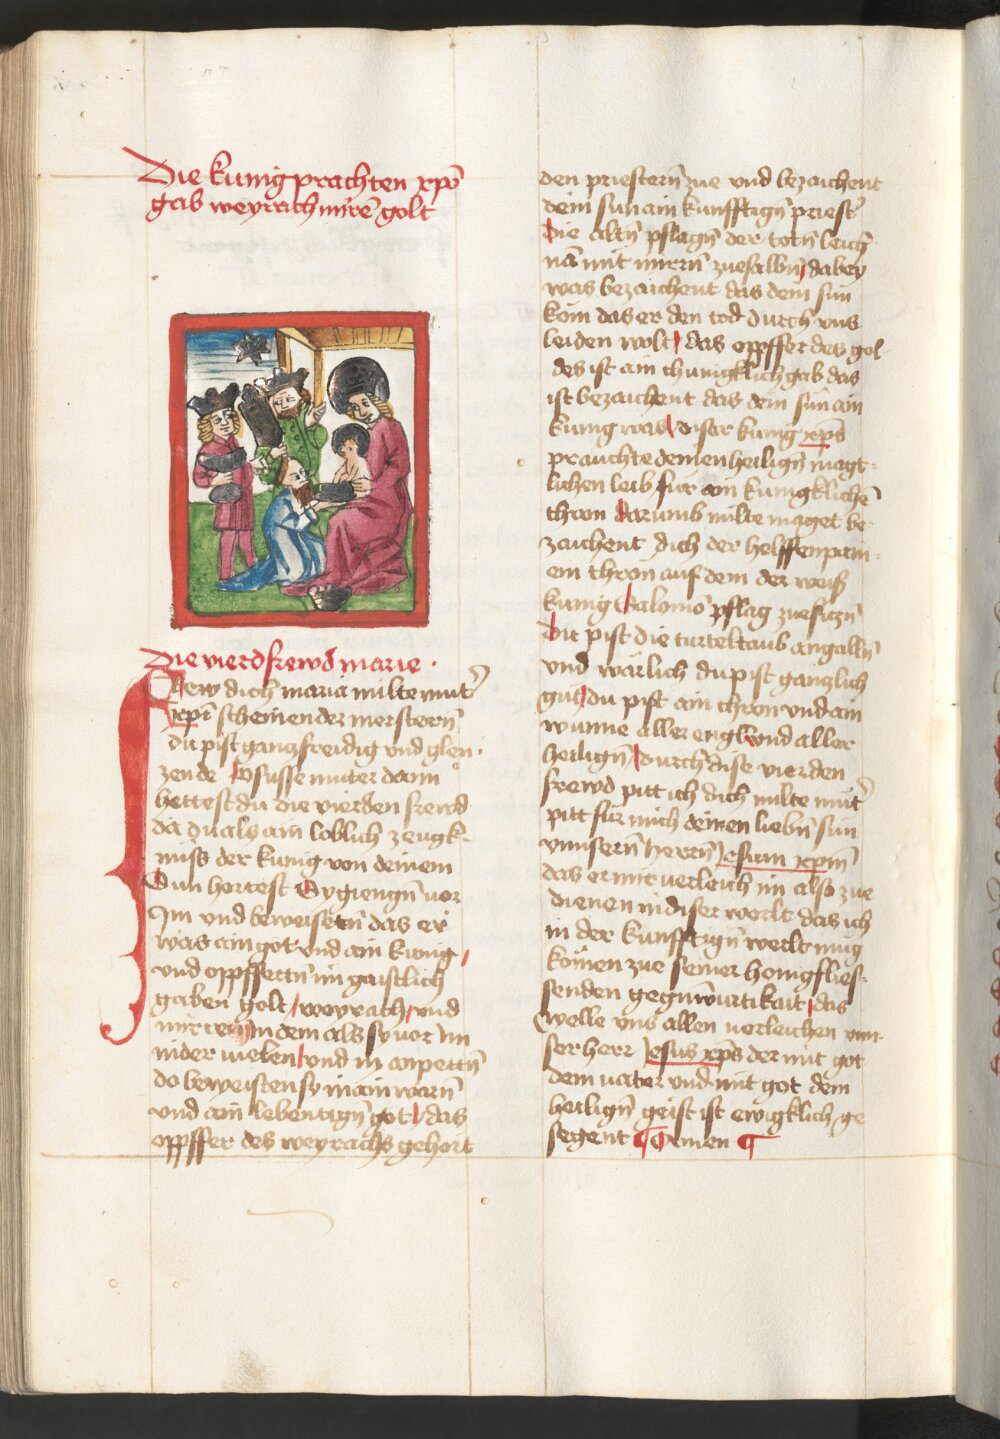 Die kunig prachten xpo
gab weyrach mirrē golt
Die vierd frewd marie ·
Frew dich maria milte mutꝰ
xpi scheinender merstern̄
du pist gantz freidig vnd glen
zende O susse muter dann
hettest du die vierden frewd
da du als ain loblich zeugk
nuss der kunig von deinem
Sun hortest Sy giengn̄ vor
Im vnd beweisetn̄ das er
was ain got vnd ain kunig
vnd oppffertn̄ im gaistlich
gaben golt weyrach vnd
mirren in dem als sy vor im
nider vielen vnd in anpettn̄
do beweisten sy in ain warn̄
vnd ain lebentign̄ got das
oppffer des weyrachs gehort
den priestern̄ zue vnd bezaichent
dein sun ain kunfftign̄ priestꝰ
Die altn̄ pflagn̄ der totn̄ leich
nā mit mirrn̄ zuesalbn̄ dabey
was bezaichent das dein sun
kom das er den tod durch vns
leiden wolt das oppffer des gol
des ist ain chunigklich gab das
ist bezaichent das dein sun ain
kunig was diser kunig xp̄s
prauchte deinen heilign̄ magt
lichen leib fur ain kunigklichē
thron Darumb milte maget be
zaichent dich der helffenpain
ein thron auf dem der weiß
kunig Salomō pflag zuesitzn̄
Du pist die turteltaub an galln̄
vnd warlich du pist gantzlich
gut du pist ain thron vnd ain
wunne aller engl vnd aller
heilign̄ durch dise vierden
frewd pitt ich dich milte mutꝰ
pitt fur mich deinen liebn̄ sun
vnnsern̄ herrn̄ Jesum xpm̄
das er mir verleich im also zue
dienen in diser werlt das ich
in der kunfftign̄ werlt mug
komen zue seiner honigflies
senden gegnwurtikait das
welle vns allen verleichen vnn
ser herr Jesus xp̄s der mit got
dem vater vnd mit got dem
heilign̄ geist ist ewigklich ge
segent Amen